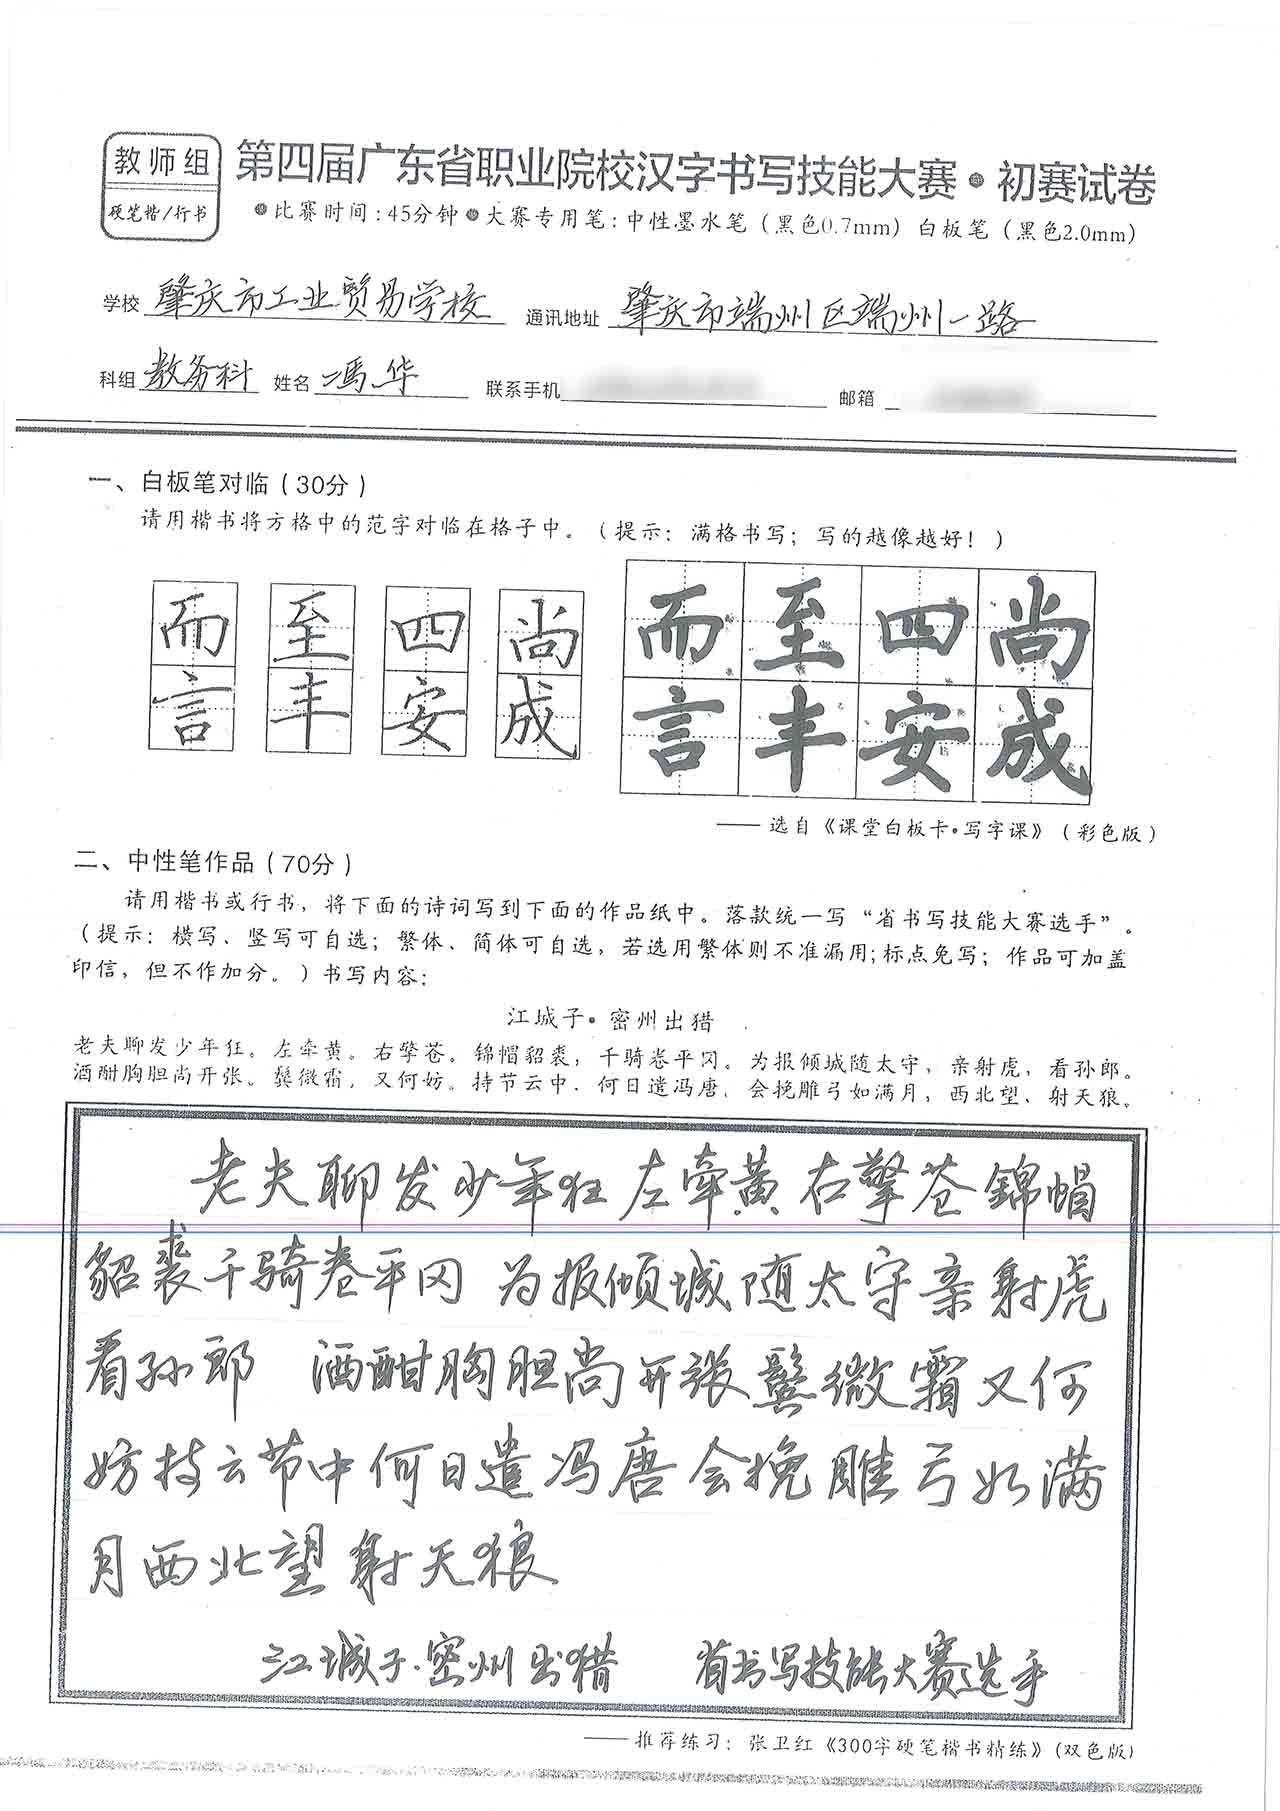 教师组
硬笔楷/行书
第四届广东省职业院校汉字书写技能大赛·初赛试卷
●比赛时间:45分钟●大赛专用笔:中性墨水笔（黑色0.7mm）白板笔（黑色2.0mm）
学校 肇庆市工业贸易学校 通讯地址 肇庆市端州区端州一路
科组 教务科 姓名 冯华 联系手机 邮箱
一、白板笔对临（30分）
请用楷书将方格中的范字对临在格子中。（提示：满格书写；写的越像越好！）
而 至 四 尚 而 至 四 尚
言 丰 安 成 言 丰 安 成
——选自《课堂白板卡·写字课》（彩色版）
二、中性笔作品（70分）
请用楷书或行书，将下面的诗词写到下面的作品纸中。落款统一写“省书写技能大赛选手”。
（提示：横写、竖写可自选；繁体、简体可自选，若选用繁体则不准漏用;标点免写；作品可加盖
印信，但不作加分。）书写内容：
江城子·密州出猎
老夫聊发少年狂。左牵黄。右擎苍。锦帽貂裘，千骑卷平冈。为报倾城随太守，亲射虎，看孙郎。
酒酣胸胆尚开张。鬓微霜，又何妨。持节云中，何日遣冯唐，会挽雕弓如满月，西北望、射天狼。
老夫聊发少年狂左牵黄右擎苍錦帽
貂裘千骑卷平冈 为报倾城随太守亲射虎
看孙郎 酒酣胸胆尚开张鬓微霜又何
妨持云节中何日遣冯唐会挽雕弓如满
月西北望射天狼
江城子·密州出猎 省书写技能大赛选手
——推荐练习：张卫红《300字硬笔楷书精练》（双色版）